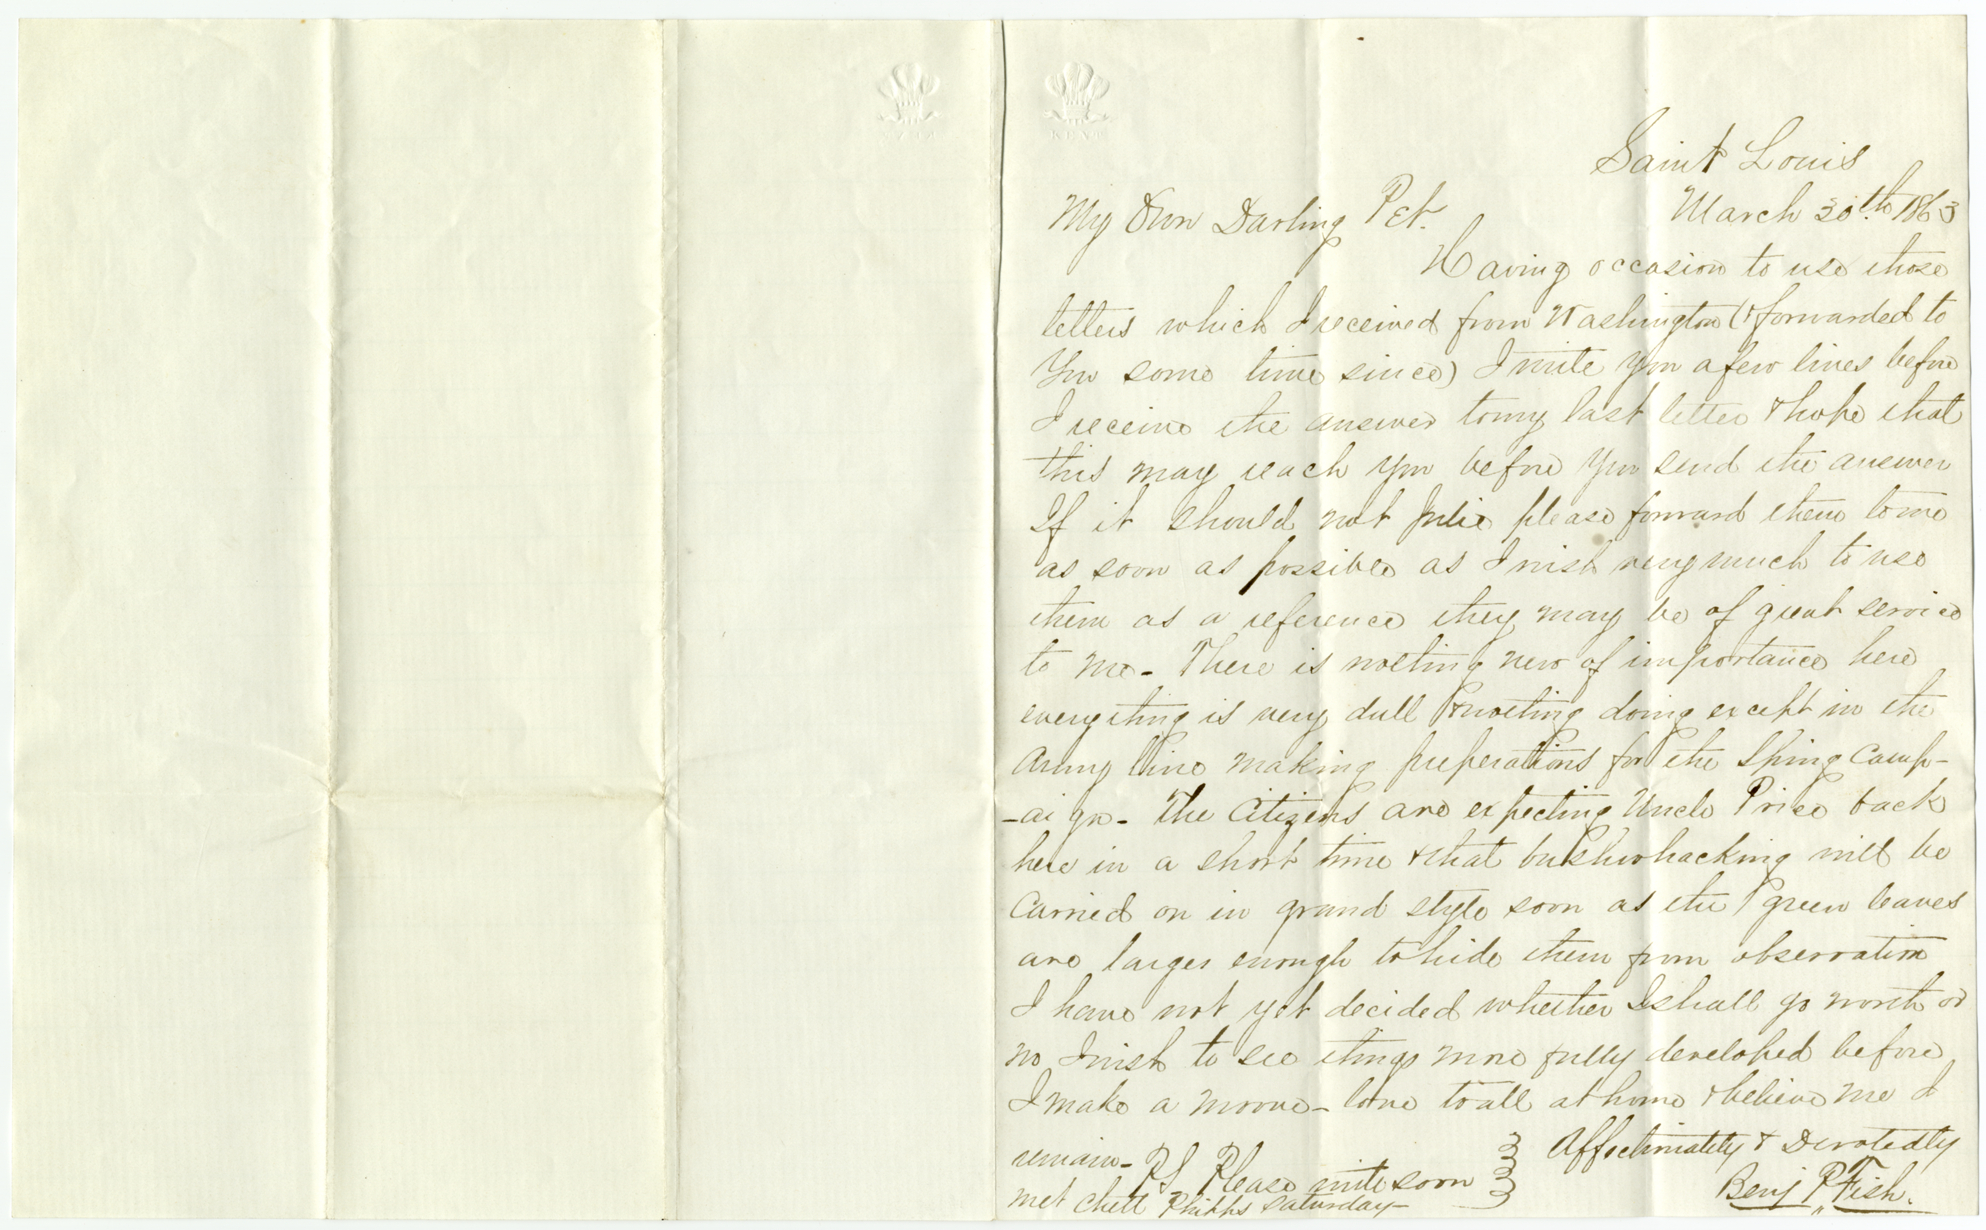 Saint Louis
March 30th 1863
My Own Darling Pet.
Having occasion to use those
letters which I received from Washington (& forwarded to
You some time since) I write you a few lines before
I receive the answer to my last letter & hope that
this may reach you before you send the answer
If it should not Julie please forward them to me
as soon as possible as I wish very much to use
them as a reference they may be of great service
to me - There is nothing new of importance here
everything is very dull & nothing doing except in the
Army line making preperations for the Spring Camp-
-aign - The Citizens are expecting Uncle Price back
here in a short time & that bushwhacking will be
Carried on in grand style soon as the green leaves
are larger enough to hide them from observation
I have not yet decided whether I shall go north or
no I wish to see things more fully developed before
I make a moove - love to all at home & believe me I
remain - Affectionately & Devotedly
Benj P. Fish.
PS Please write soon
met Chett Phipps Saturday -